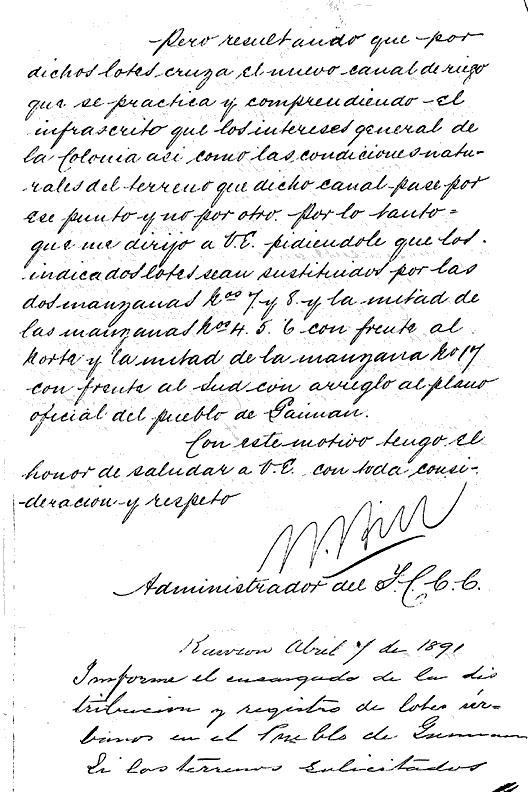 Pero resultando que por
dichos lotes cruza el nuevo canal de riego
que se practica y comprendiendo el
infrascrito que los intereses general de
la Colonia asi como las condiciones natu-
rales del terreno que dicho canal pase por
ese punto y no por otro. Por lo tanto
que me dirijo a V.E. pidiendole que los
indicados lotes sean sustituidos por las
dos manzanas Nos 7 y 8 y la mitad de
las manzanas Nos 4. 5. 6 con frente al
Norte y la mitad de la manzana No 17
con frente al Sud con arreglo al plano
oficial del pueblo de Gaiman.
Con este motivo tengo el
honor de saludar a V.E. con toda consi-
deracion y respeto
Administrador del F.C.C.C.
Rawson Abril 7 de 1891
Imforme el encargado de la dis
tribucion y registro de lotes úr-
banos en el Pueblo de
Si los terrenos solicitados